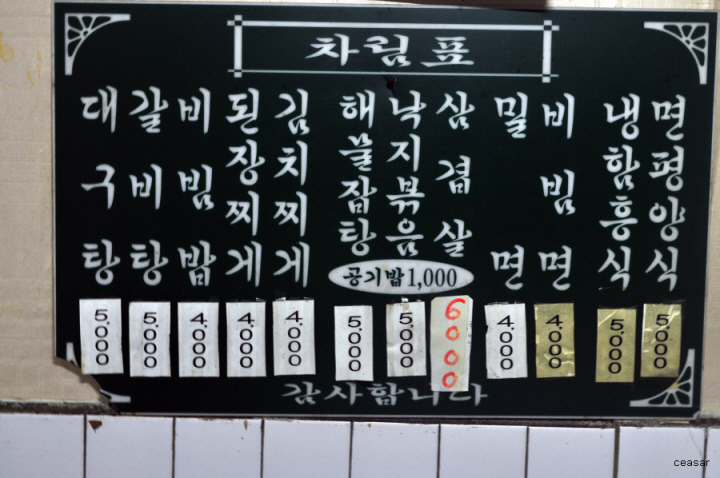 차림표
대구탕 5,000
갈비탕 5,000
비빔밥 4,000
된장찌게 4,000
김치찌게 4,000
해물잡탕 5,000
낙지볶음 5,000
삼겹살 6000
밀면 4,000
비빔면 4,000
냉함흥식 5,000
면평양식 5,000
공기밥 1,000
감사합니다
ceasar